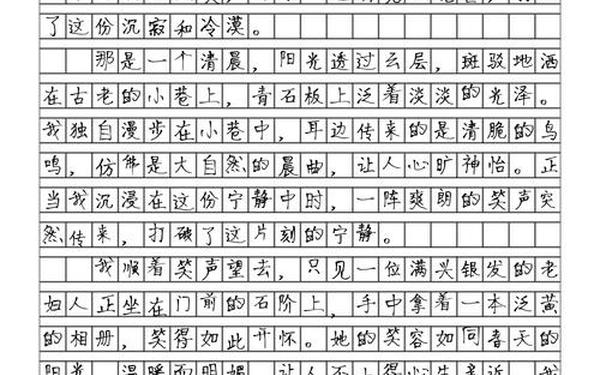 了这份沉寂和冷漠。
那是一个清晨，阳光透过云层，斑驳地洒
在古老的小巷上，青石板上泛着淡淡的光泽。
我独自漫步在小巷中，耳边传来的是清脆的鸟
鸣，仿佛是大自然的晨曲，让人心旷神怡。正
当我沉浸在这份宁静中时，一阵爽朗的笑声突
然传来，打破了这片刻的宁静。
我顺着笑声望去，只见一位满头银发的老
妇人正坐在门前的石阶上，手中拿着一本泛黄
的相册，笑得如此开怀。她的笑容如同春天的
阳光，温暖而明媚，让人不由得心生亲近。我